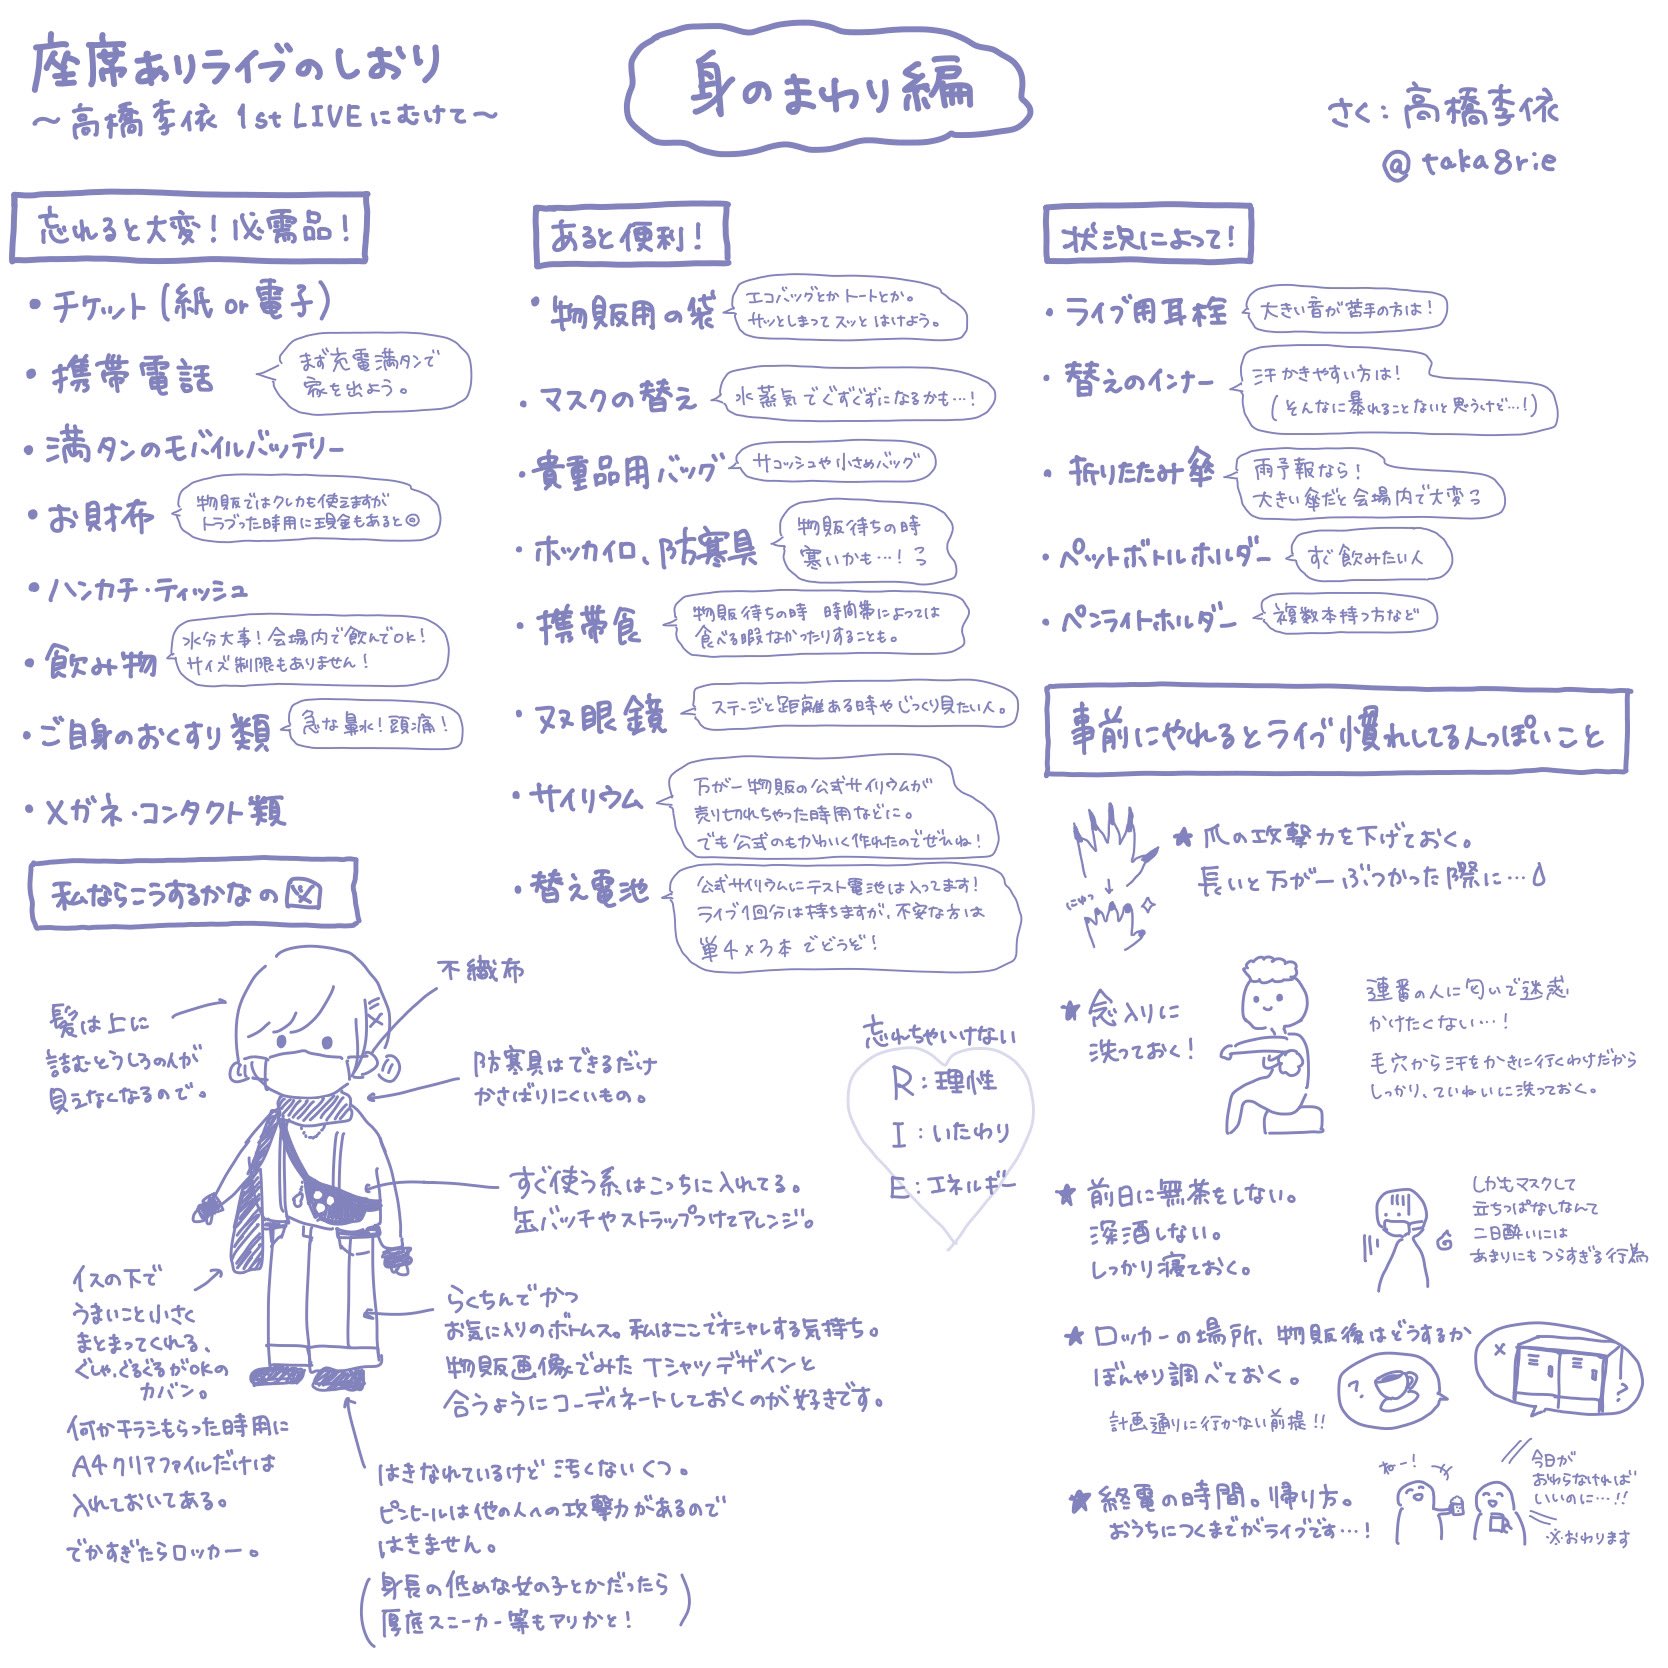 座席ありライブのしおり
〜高橋李依 1st LIVEにむけて〜
身のまわり編
さく:高橋李依
@taka8rie
忘れると大変!必需品!
・チケット(紙or電子)
・携帯電話
まず充電満タンで
家を出よう。
・満タンのモバイルバッテリー
・お財布
物販ではクレカも使えますが
トラブった時用に現金もあると◎
・ハンカチ・ティッシュ
・飲み物
水分大事!会場内で飲んでOK!
サイズ制限もありません!
・ご自身のおくすり類
急な鼻水!頭痛!
・メガネ・コンタクト類
あると便利!
・物販用の袋
エコバッグとかトートとか。
サッとしまってスッとはけよう。
・マスクの替え
水蒸気でぐずぐずになるかも…!
・貴重品用バッグ
サコッシュや小さめバッグ
・ホッカイロ、防寒具
物販待ちの時
寒いかも…!
・携帯食
物販待ちの時 時間帯によっては
食べる暇なかったりすることも。
・双眼鏡
ステージと距離ある時やじっくり見たい人。
・サイリウム
万が一物販の公式サイリウムが
売り切れちゃった時用などに。
でも公式のもかわいく作れたのでぜひね!
・替え電池
公式サイリウムにテスト電池は入ってます!
ライブ1回分は持ちますが、不安な方は
単4×3本でどうぞ!
状況によって!
・ライブ用耳栓
大きい音が苦手の方は!
・替えのインナー
汗かきやすい方は!
(そんなに暴れることないと思うけど…!)
・折りたたみ傘
雨予報なら!
大きい傘だと会場内で大変っ
・ペットボトルホルダー
すぐ飲みたい人
・ペンライトホルダー
複数本持つ方など
事前にやれるとライブ慣れしてる人っぽいこと
★爪の攻撃力を下げておく。
長いと万が一ぶつかった際に…
にゃっ
★念入りに
洗っておく!
連番の人に匂いで迷惑
かけたくない…!
毛穴から汗をかきに行くわけだから
しっかり、ていねいに洗っておく。
★前日に無茶をしない。
深酒しない。
しっかり寝ておく。
しかもマスクして
立ちっぱなしなんて
二日酔いには
あまりにもつらすぎる行為
★ロッカーの場所、物販後はどうするか
ぼんやり調べておく。
計画通りに行かない前提!!
?
?
★終電の時間。帰り方。
おうちにつくまでがライブです…!
ねー!
今日が
おわらなければ
いいのに…!!
※おわります
私ならこうするかなの図
髪は上に
詰むとうしろの人が
見えなくなるので。
不織布
防寒具はできるだけ
かさばりにくいもの。
すぐ使う系はこっちに入れてる。
缶バッチやストラップつけてアレンジ。
イスの下で
うまいこと小さく
まとまってくれる、
ぐしゃぐるぐるがOKの
カバン。
何かチラシもらった時用に
A4クリアファイルだけは
入れておいてある。
でかすぎたらロッカー。
らくちんでかつ
お気に入りのボトムス。私はここでオシャレする気持ち。
物販画像でみたTシャツデザインと
合うようにコーディネートしておくのが好きです。
はきなれているけど汚くないくつ。
ピンヒールは他の人への攻撃力があるので
はきません。
(身長の低めな女の子とかだったら
厚底スニーカー等もアリかと!)
忘れちゃいけない
R:理性
I:いたわり
E:エネルギー